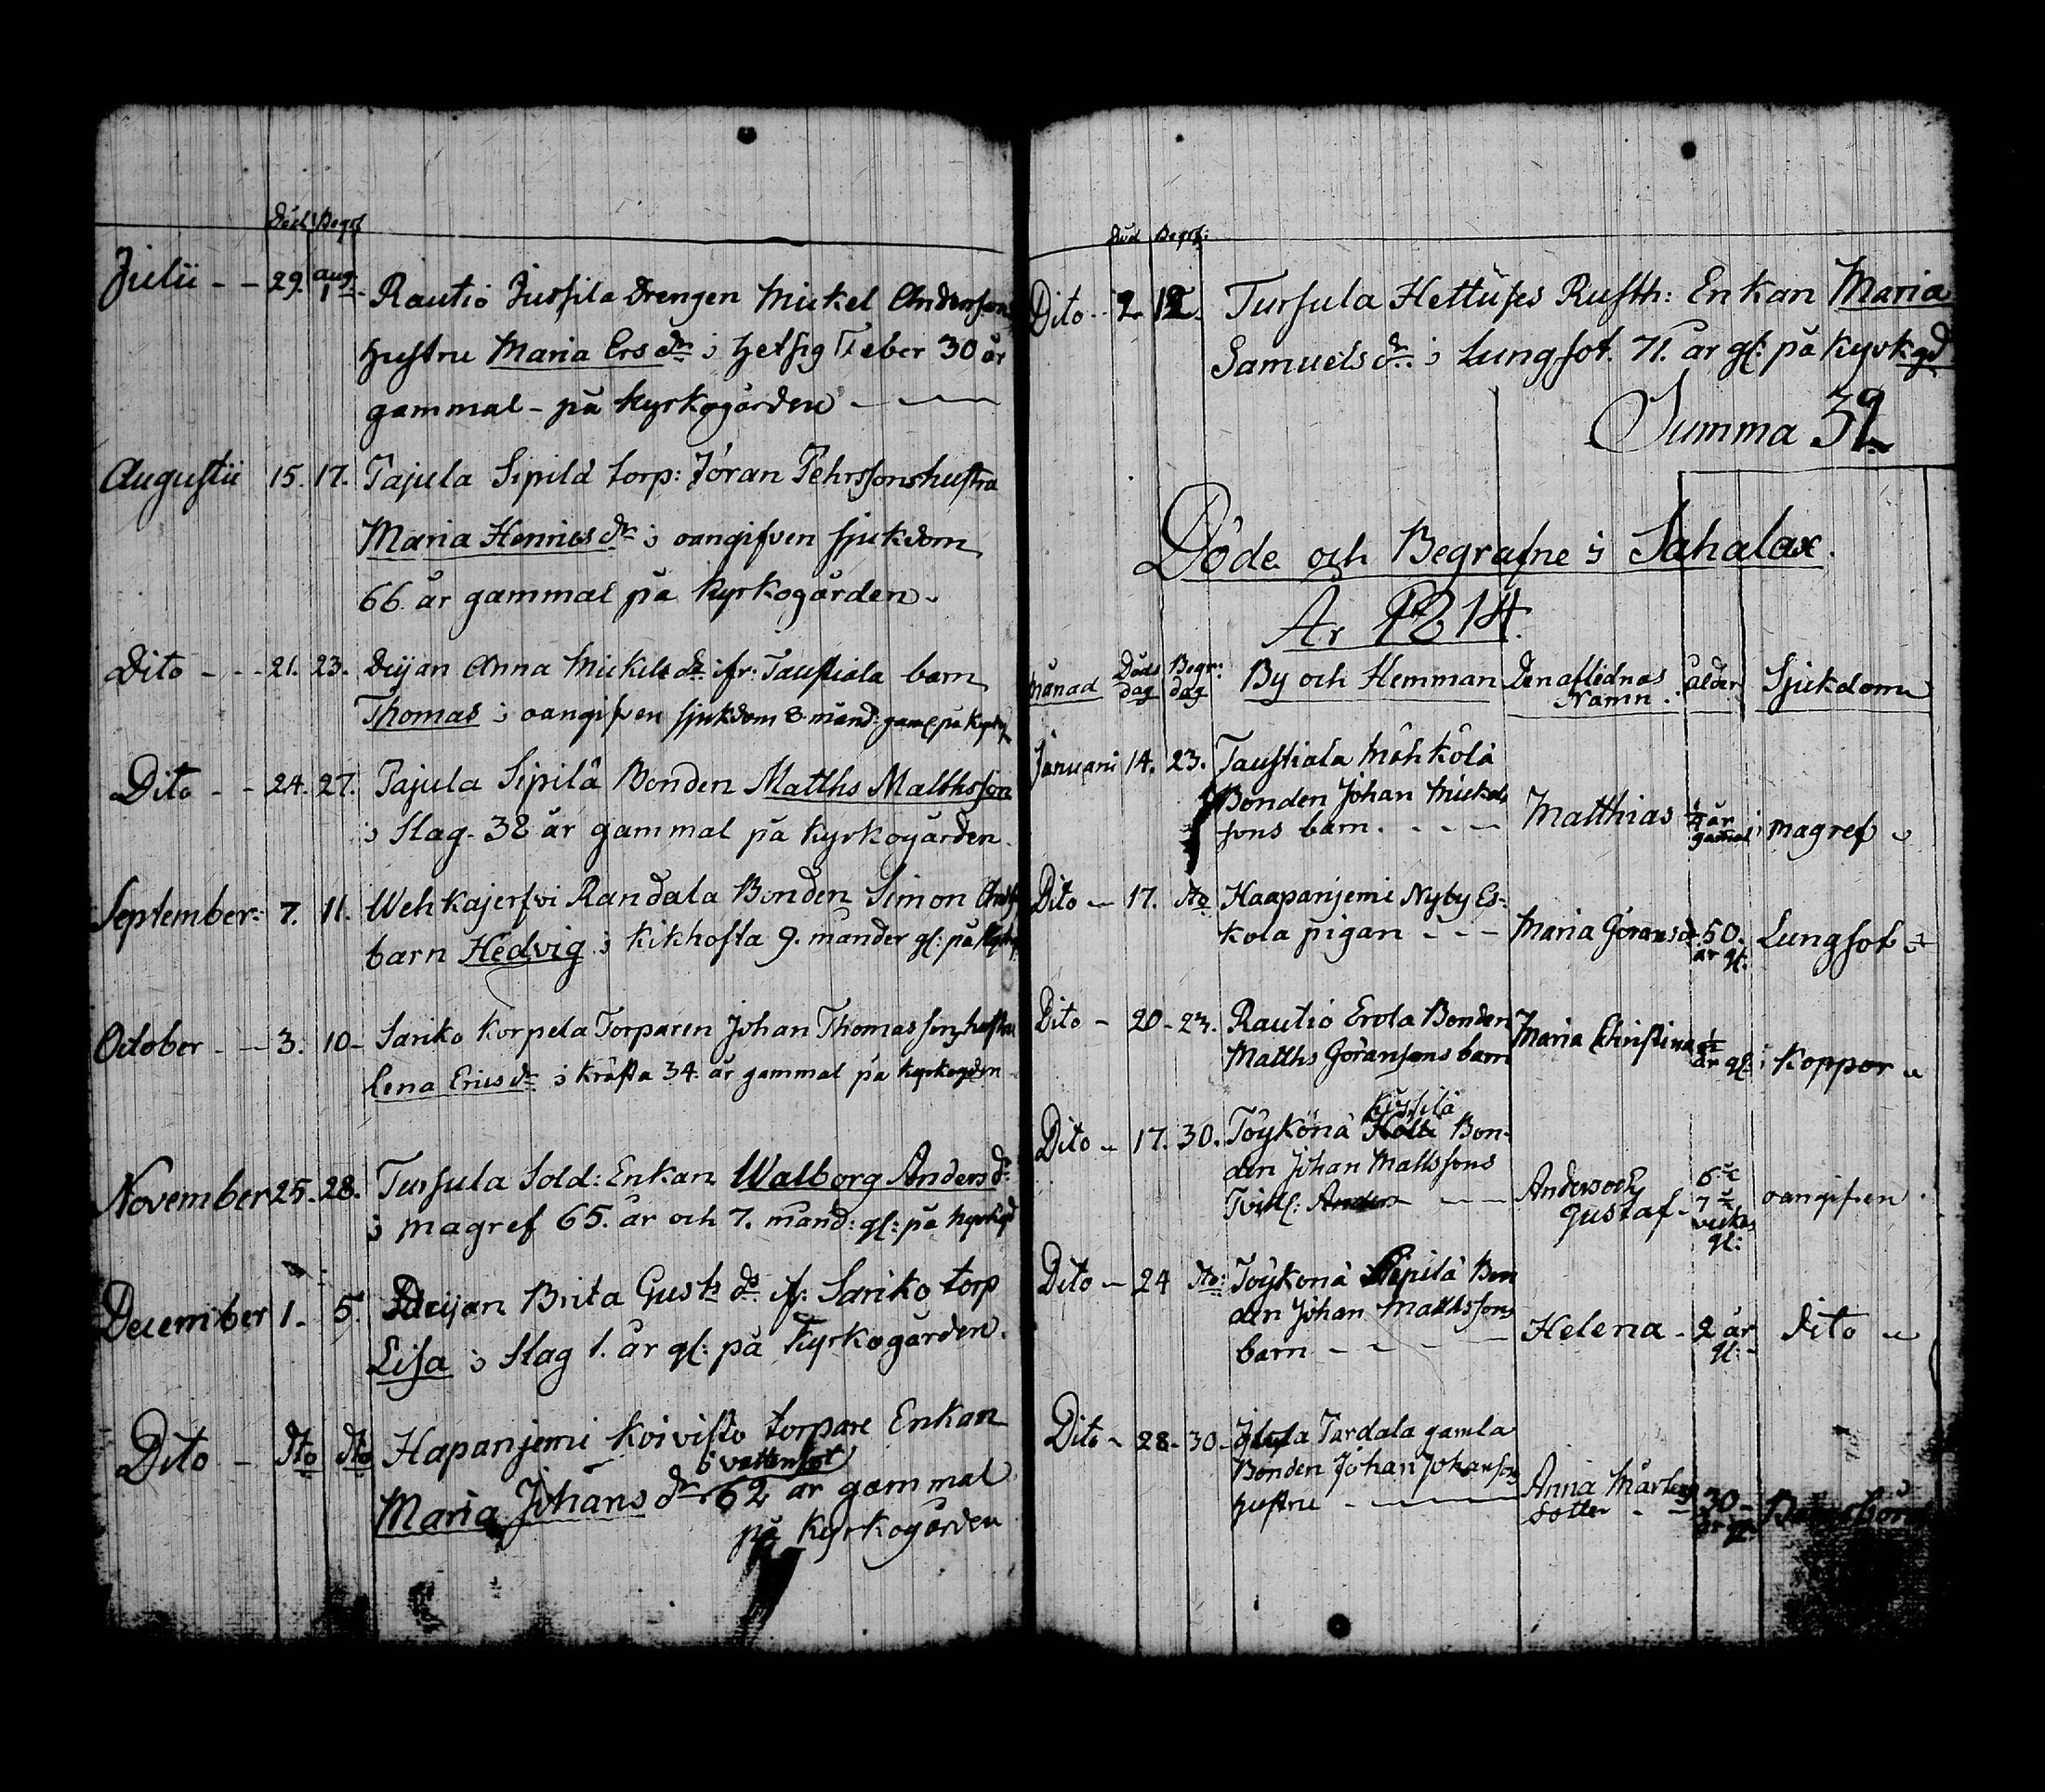 Död Begrf
Julii - - 29. Aug. 1 Rautio Jussila Drengen Mickel Andersson
hustru Maria Ers dr i Hetsig Feber 30 år
gammal - på kyrkogården
Augustii 15. 17. Pajula Sipilä torp: Jöran Pehrssons hustru
Maria Henrics dr i oangifven sjukdom
66 år gammal på kyrkogården
Dito - - - 21. 23. Deijan Anna Mickels dr ifr: Taustiala barn
Thomas i oangifven sjukdom 8 månd: gaml på
Dito - - 24. 27. Pajula Sipilä Bonden Matths Matthsson
i Slag. 38 år gammal på kyrkogården.
September: 7. 11. Wehkajerfvi Randala Bonden Simon
barn Hedvig i kikhosta 9. månder gl: på
October - - 3. 10 - Sariko Korpela Torparen Johan Thomassons hustru
Lena Erics dr i kräfta 34 år gammal på kyrkogden
November 25. 28. Tursula Sold: Enkan Walborg Anders dr
i magref 65. år och 7. månd: gl: på kyrkgd
December 1. 5. Deijan Brita Gust: dr if: Sariko torp
Lisa i Slag 1. år gl: på kyrkogården.
Dito - dto dto Hapanjemi Koivisto torpare Enkan
i vattensot
Maria Johans dr 62 år gammal
på kyrkogården
Död Begrf:
Dito - 2 12. Tursula Hettuses Rusth: Enkan Maria
Samuels dr i Lungsot. 71. år gl: på kyrkgd
Summa 39
Döde och Begrafne i Sahalax.
År 1814.
Månad Döds dag Begr: dag By och Hemman Den aflidnas Namn. ålder Sjukdom
Januari 14. 23. Taustiala Möhkölä
Bonden Johan Mickels
sons barn. - - - Matthias 1/4 år gammal i magref
Dito - 17. dto Haapanjemi Nyby Es-
kola pigan - - - Maria Görans d. 50. år gl. Lungsot
Dito - 20 - 23. Rautio Erola Bonden
Matths Göransons barn Maria Christina år gl: i Koppor
Jussilä
Dito - 17. 30. Töykönä Bon-
den Johan Mattssons
Tvill: Anders - - Anders och Gustaf - 6 7 veckor gl: oangifven.
Dito - 24 dto: Töykenä Sipilä Bon
den Johan Matthssons
barn - - - Helena - 2 år gl: - Dito
Dito - 28 - 30 - Tardala gamla
Bonden Johan Johansons
hustru - - - Anna Mårtens dotter - - 30 - år gl.